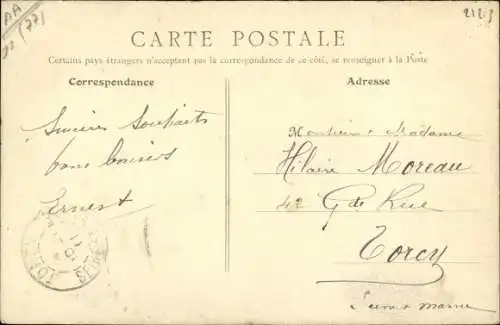 AA
(77)
CARTE POSTALE
Certains pays étrangers n'acceptant pas la correspondance de ce côté, se renseigner à la Poste
Correspondance
Adresse
Sincères Souhaits
bons baisers
Ernest
Monsieur & Madame
Hilaire Moreau
42 Gde Rue
Torcy
Seine & Marne